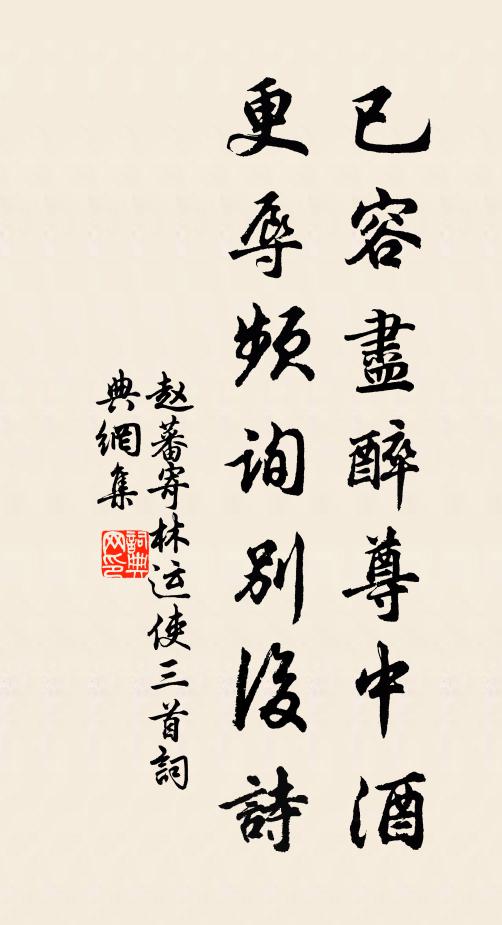 已容盡醉尊中酒
更辱頻詢別後詩
赵蕃寄林运使三首詞
典網集
詞典
网印